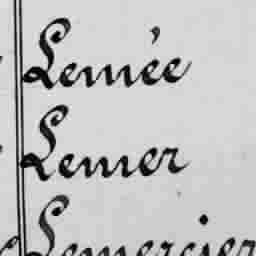 Lemée
Lemer
Lemercier